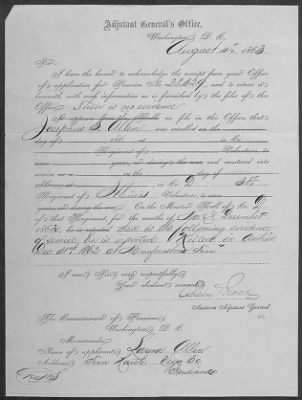 Adjutant General's Office,
Washington, D. C.
August 14th, 1863
Sir:
I have the honor to acknowledge the receipt from your Office
of application for Pension No. and to return it
herewith, with such information as is furnished by the files of this
Office. There is no evidence
on file in this Office, that
Allen was enrolled on the
day of 186 in Co.
Regiment of Volunteers, to
serve years, and mustered into
service as a on the day of
186 at in Co. 31st
Regiment of Illinois Volunteers, to serve
years. On the Muster Roll of Co.
of that Regiment, for the months of Nov & December
1862, he is reported there is the following evidence
of service, he is reported Killed in action
Dec 31st 1862 at Murfreesboro Tenn
I am Sir, very respectfully,
Your obedient servant,
Assistant Adjutant General.
The Commissioner of Pensions,
Washington, D. C.
Memoranda:
Name of applicant, Laura Allen
Address, Terre Haute, Vigo Co.
Indiana